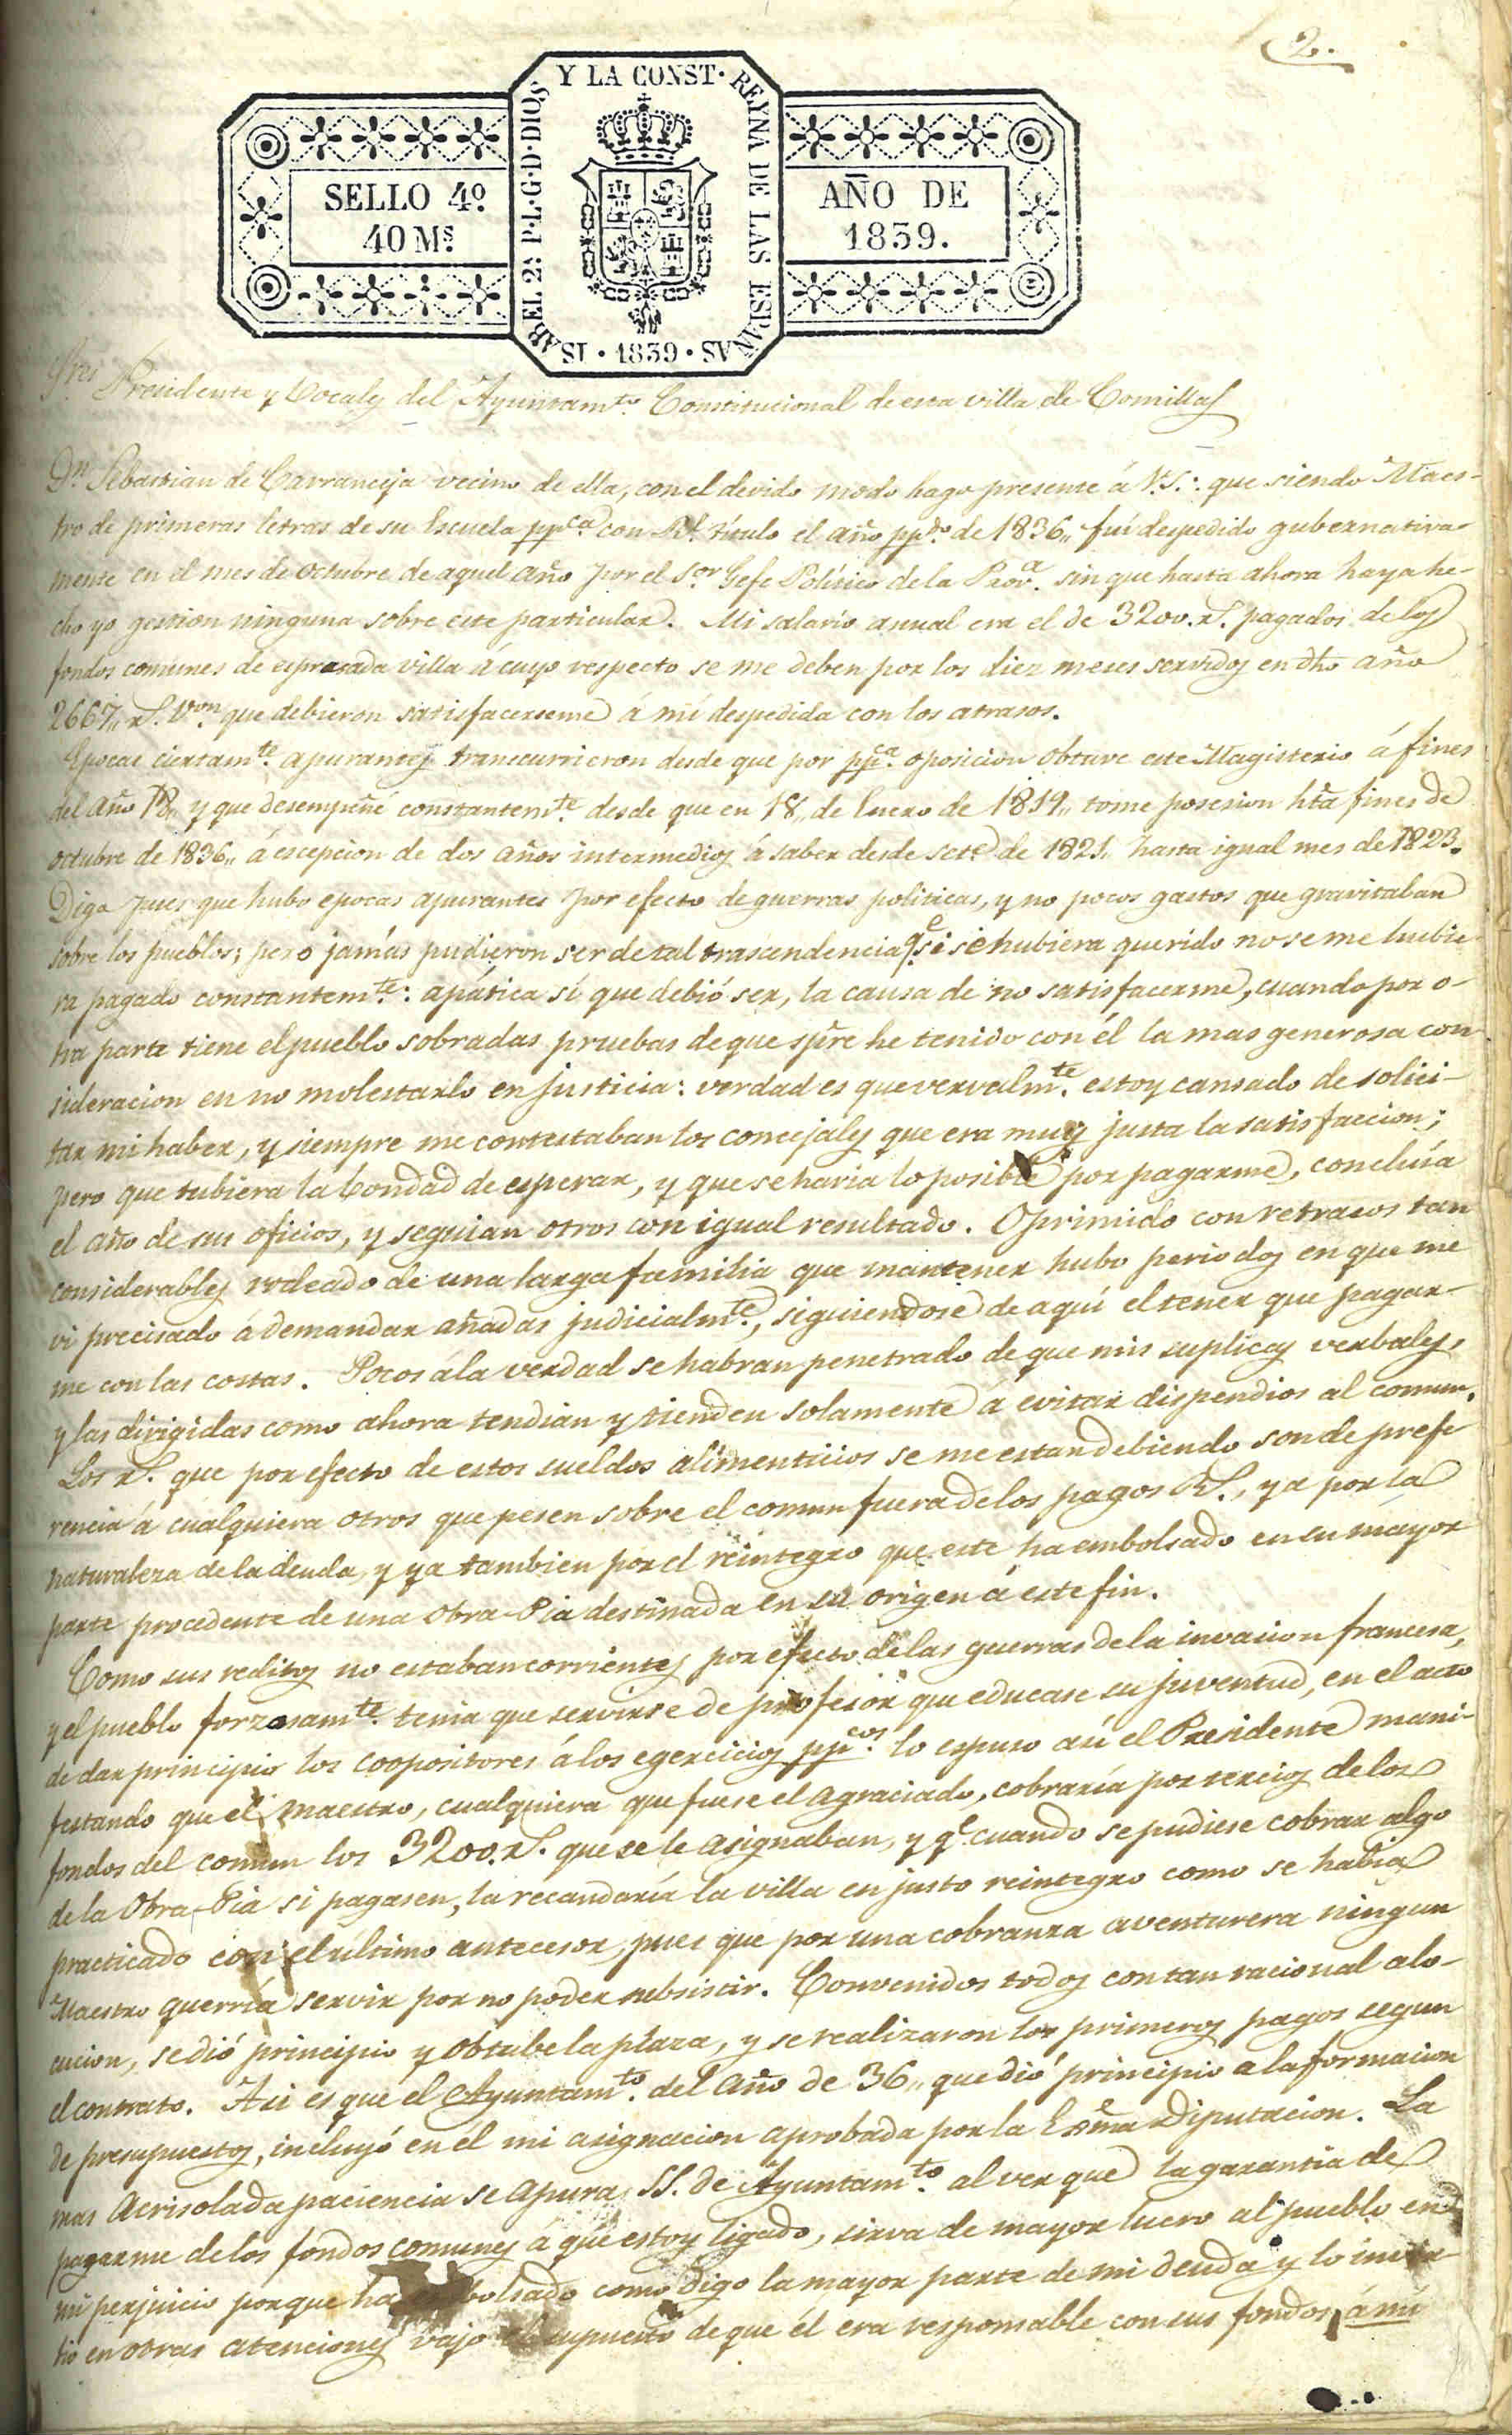 2.
Y LA CONST. REYNA DE LAS ESPAÑAS · 1839 · ISABEL 2ª P.L.G.D.DIOS
SELLO 4º
40 Mˢ
AÑO DE
1839.
Sres Presidente y Vocales del Ayuntamto. Constitucional de esta villa de Comillas
Dn. Sebastian de Carranceja vecino de ella, con el devido modo hago presente á V.S.: que siendo Maes-
tro de primeras letras de su Escuela ppca. con Rl. título el año ppdo. de 1836,, fuí despedido gubernativa-
mente en el mes de octubre de aquel año por el Sor Gefe Político de la Prova. sin que hasta ahora haya he-
cho yo gestion ninguna sobre este particular. Mi salario anual era el de 3200. rs. pagados de los
fondos comunes de espresada villa á cuyo respecto se me deben por los diez meses servidos en dho año
2667,, rs. von que debieron satisfacerseme á mi despedida con los atrasos.
Epocas ciertamte. apurantes transcurrieron desde que por ppca. oposicion obtuve este Magisterio á fines
del año 18,, y que desempeñé constantemte. desde que en 18,, de Enero de 1819,, tome posesion hta fines de
octubre de 1836,, á escepcion de dos años intermedios á saber desde sete. de 1821,, hasta igual mes de 1823.
Digo pues que hubo epocas apurantes por efecto de guerras politicas, y no pocos gastos que gravitaban
sobre los pueblos; pero jamás pudieron ser de tal trascendencia qe. si se hubiera querido no se me hubie-
ra pagado constantemte.: apática sí que debió ser, la causa de no satisfacerme, cuando por o-
tra parte tiene el pueblo sobradas pruebas de que spre he tenido con él la mas generosa con
sideracion en no molestarlo en justicia: verdad es que vervalmte. estoy cansado de solici-
tar mi haber, y siempre me contestaban los concejales que era muy justa la satisfaccion;
pero que tubiera la bondad de esperar, y que se haria lo posible por pagarme, concluía
el año de sus oficios, y seguian otros con igual resultado. Oprimido con retrasos tan
considerables rodeado de una larga familia que mantener hubo periodos en que me
vi precisado á demandar añadas judicialmte., siguiendose de aquí el tener que pagar-
me con las costas. Pocos á la verdad se habran penetrado de que mis suplicas verbales,
y las dirigidas como ahora tendian y tienden solamente á evitar dispendios al comun.
Los rs. que por efecto de estos sueldos alimenticios se me estan debiendo son de prefe
rencia á cualquiera otros que pesen sobre el comun fuera de los pagos Rs., ya por la
naturaleza de la deuda, y ya tambien por el reintegro que este ha embolsado en su mayor
parte procedente de una obra-Pia destinada en su origen á este fin.
Como sus reditos no estaban corrientes por efecto de las guerras de la invasion francesa,
y el pueblo forzosamte. tenia que servirse de profesor que educase su juventud, en el acto
de dar principio los coopositores á los egercicios ppcos. lo espuso así el Presidente mani-
festando que el maestro, cualquiera que fuese el agraciado, cobraría por tercios de los
fondos del comun los 3200. rs. que se le asignaban, y qe. cuando se pudiese cobrar algo
de la Obra-Pia si pagasen, la recaudaría la villa en justo reintegro como se habia
practicado con el último antecesor, pues que por una cobranza aventurera ningun
Maestro querría servir por no poder subsistir. Convenidos todos con tan racional alo-
cucion, se dió principio y obtube la plaza, y se realizaron los primeros pagos segun
el contrato. Asi es que el Ayuntamto. del año de 36,, que dió principio a la formacion
de presupuestos, incluyó en el mi asignacion aprobada por la Exma Diputacion. La
mas acrisolada paciencia se apura, SS. de Ayuntamto. al ver que la garantia de
pagarme de los fondos comunes á que estoy ligado, sirva de mayor lucro al pueblo en
mi perjuicio porque ha embolsado como digo la mayor parte de mi deuda y lo inver-
tio en otras atenciones vajo el supuesto de que él era responsable con sus fondos á mí